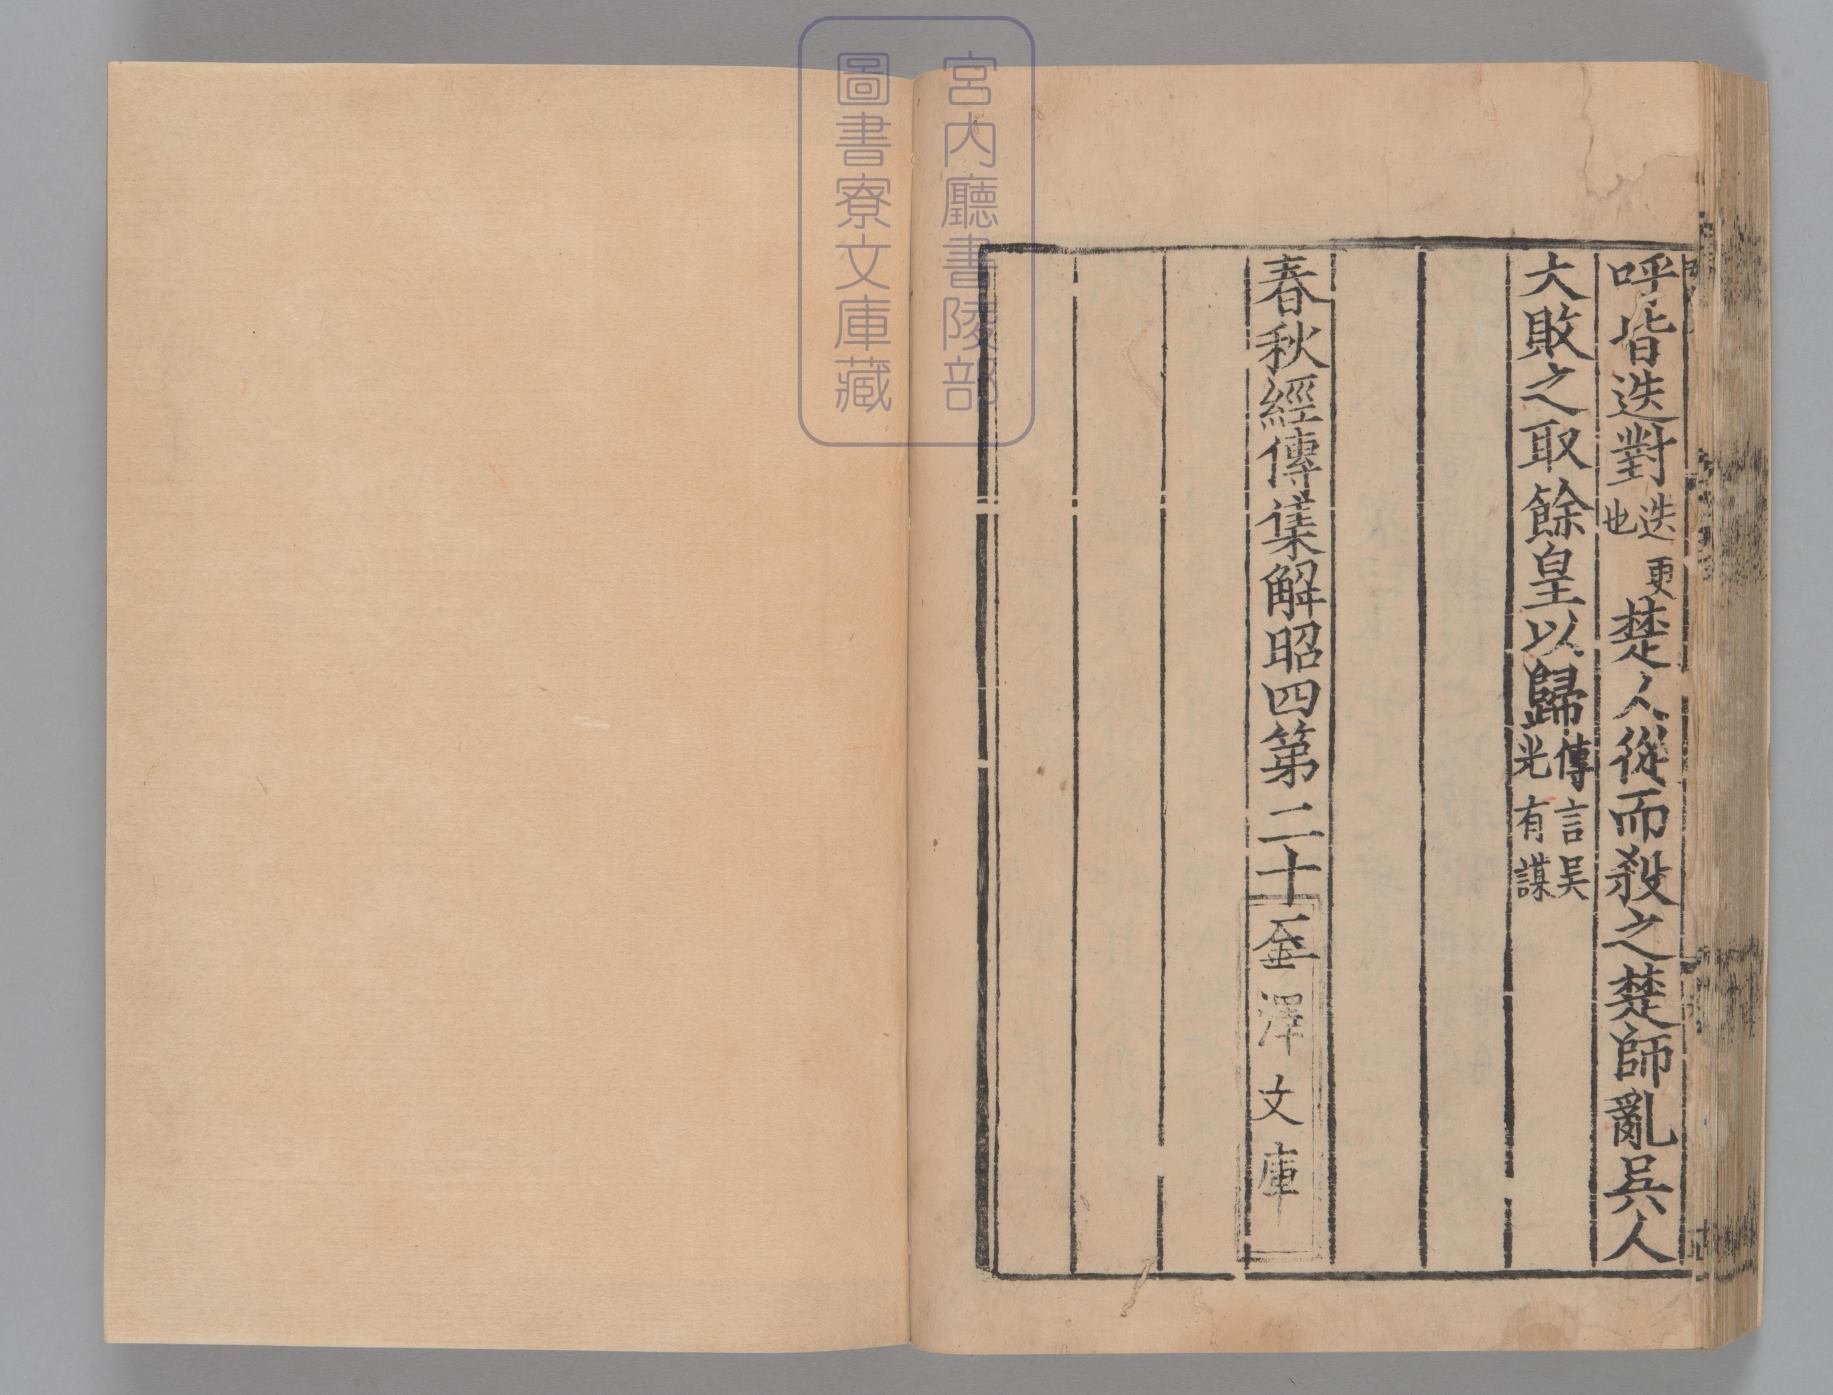 呼皆迭對迭更也楚人從而殺之楚師亂吳人
大敗之取餘皇以歸傳言吳光有謀
春秋經傳集解昭四第二十四
金澤文庫
宮內廳書陵部
圖書寮文庫藏